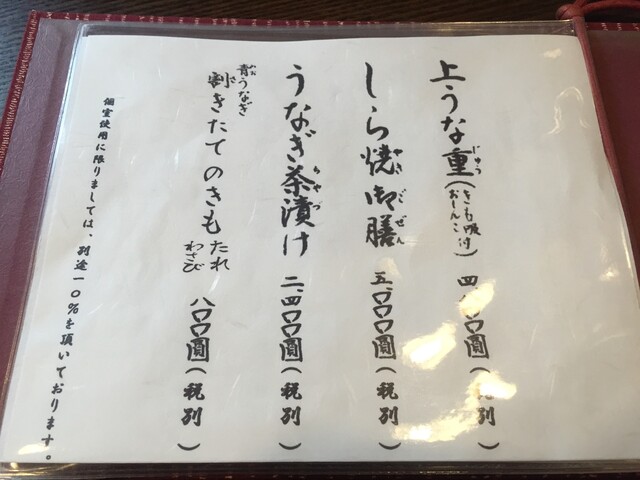 上うな重(きも吸付 おしんこ) 四、 〇〇圓(税別)
じゅう
しら焼御膳 五、〇〇〇圓(税別)
やき ごぜん
うなぎ茶漬け 二、四〇〇圓(税別)
ちゃづ
青うなぎ
あお
割きたてのきも たれ わさび 八〇〇圓(税別)
さ
個室使用に限りましては、別途一〇%を頂いております。